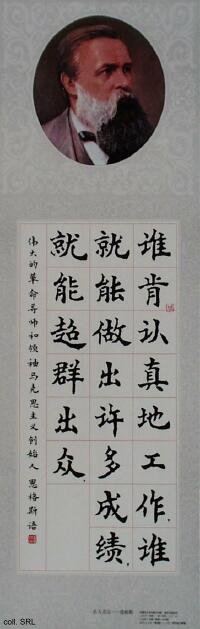 谁肯认真地工作，谁
就能做出许多成绩，
就能超群出众，
伟大的革命导师和领袖马克思主义创始人恩格斯语
coll. SRL